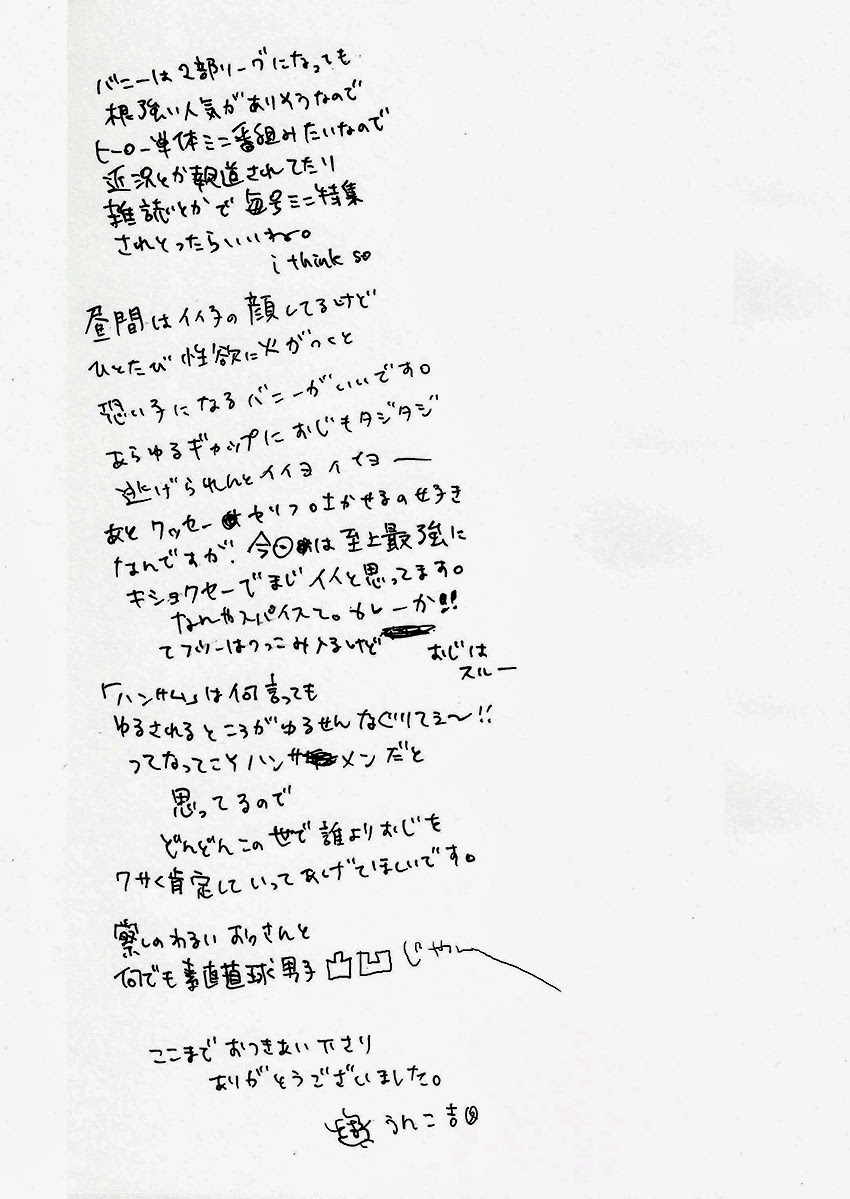 バニーは2部リーグになっても
根強い人気がありそうなので
ヒーロー単体ミニ番組みたいなので
近況とか報道されてたり
雑誌とかで毎号ミニ特集
されとったらいいね。
i think so
昼間はイイ子の顔してるけど
ひとたび性欲に火がつくと
恐い子になるバニーがいいです。
あらゆるギャップにおじもタジタジ
逃げられんとイイヨイイヨー
あとクッセーセリフ吐かせるの好き
なんですが、今回は至上最強に
キショクセーでまじイイと思ってます。
なんやスパイスて。カレーか!!
てフツーはつっこみ入るけど
おじは
スルー
「ハンサム」は何言っても
ゆるされるところがゆるせんなぐりてぇ〜!!
ってなってこそハンサメンだと
思ってるので
どんどんこの世で誰よりおじを
クサく肯定していってあげてほしいです。
察しのわるいおっさんと
何でも素直直球男子凸凹じゃん
ここまでおつきあい下さり
ありがとうございました。
うんこ吉